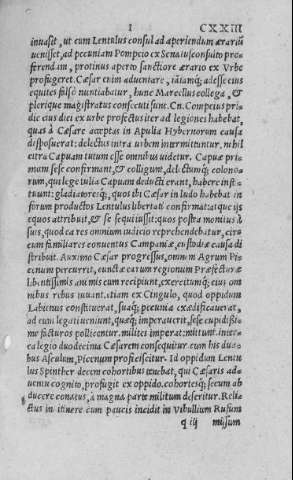 I CXXIII
inuasit, ut cum Lentulus consul ad aperiendum ærariũ
uenisset, ad pecuniam Pompeio ex Senatusconsulto pro
ferendam, protinus aperto sanctiore ærario ex Vrbe
profugeret. Cæsar enim aduentare, iãiamq; adesse eius
equites falso nuntiabatur, hunc Marcellus collega, &
plerique magistratus consecuti sunt. Cn. Pompeius pri
die eius diei ex urbe profectus iter ad legiones habebat,
quas à Cæsare acceptas in Apulia Hybernorum causa
disposuerat: delectus intra urbem intermittuntur. nihil
citra Capuam tutum esse omnibus uidetur. Capuæ pri
mum sese confirmant, & colligunt, delectumq; colono
rum, qui lege Iulia Capuam deducti erant, habere insti
tuunt: gladiatoresq;, quos ibi Cæsar in ludo habebat in
forum productos Lentulus libertati confirmat: atque ijs
equos attribuit, & se sequi iussit: quos postea monitus à
suis, quod ea res omnium iudicio reprehendebatur, cir
cum familiares conuentus Campaniæ, custodiæ causa di
stribuit. Auximo Cæsar progressus, omnem Agrum Pi
cenum percurrit, cunctæ earum regionum Præfecturæ
libentissimis animis eum recipiunt, exercitumq; eius om
nibus rebus iuuant. etiam ex Cingulo, quod oppidum
Labienus constituerat, suaq; pecunia exædificauerat,
ad eum legati ueniunt, quæq; imperauerit, sese cupidissi
me facturos pollicentur. milites imperat: mittunt. inter
ea legio duodecima Cæsarem consequitur. cum his dua
bus Asculum, Picenum proficiscitur. Id oppidum Lentu
lus Spinther decem cohortibus tenebat, qui Cæsaris ad
uentu cognito, profugit ex oppido. cohortesq; secum ab
ducere conatus, à magna parte militum deseritur. Reli
ctus in itinere cum paucis incidit in Vibullium Rufum
q iij missum